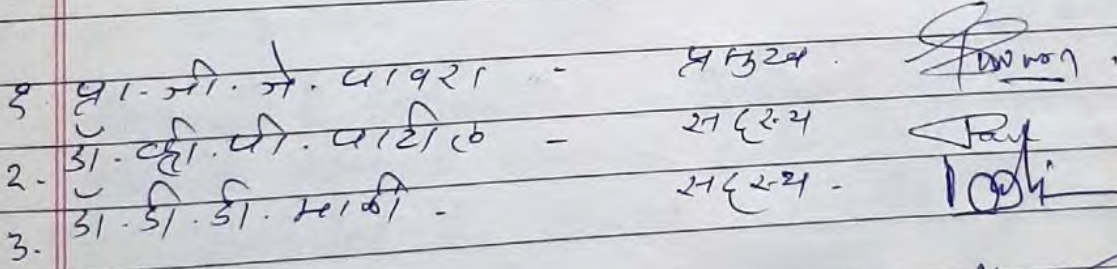 १. प्रा. जी. जे. पावरा - प्रमुख.
2. डॉ. व्ही. पी. पाटील - सदस्य
3. डॉ. डी. डी. माळी - सदस्य -